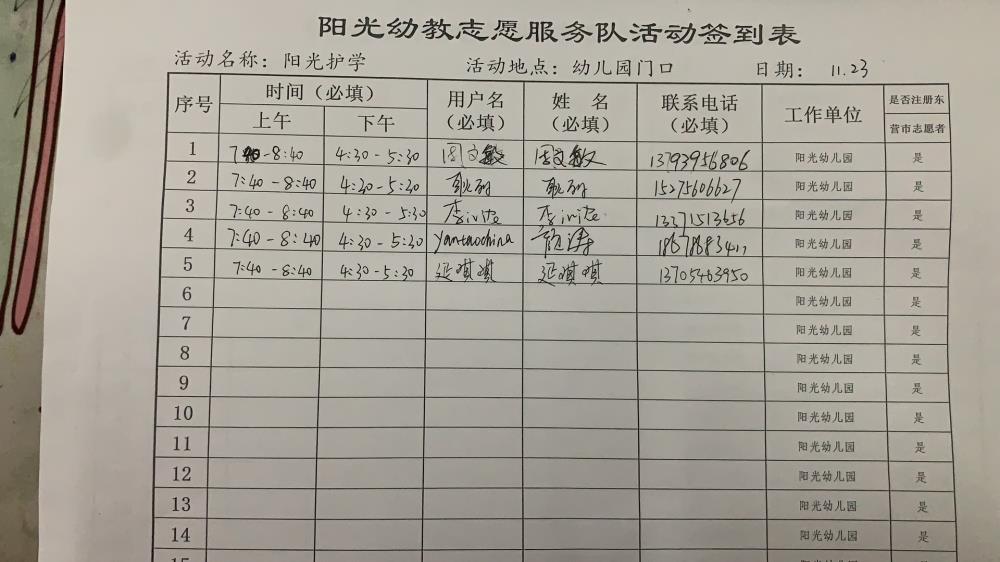 阳光幼教志愿服务队活动签到表
活动名称：阳光护学 活动地点：幼儿园门口 日期：11.23
序号 时间（必填） 用户名（必填） 姓 名（必填） 联系电话（必填） 工作单位 是否注册东营市志愿者
上午 下午
1 7:40-8:40 4:30-5:30 周文敏 周文敏 13793956806 阳光幼儿园 是
2 7:40-8:40 4:30-5:30 15275606627 阳光幼儿园 是
3 7:40-8:40 4:30-5:30 13371513656 阳光幼儿园 是
4 7:40-8:40 4:30-5:30 yantaochina 颜涛 阳光幼儿园 是
5 7:40-8:40 4:30-5:30 延琪琪 延琪琪 13705463950 阳光幼儿园 是
6 阳光幼儿园 是
7 阳光幼儿园 是
8 阳光幼儿园 是
9 阳光幼儿园 是
10 阳光幼儿园 是
11 阳光幼儿园 是
12 阳光幼儿园 是
13 阳光幼儿园 是
14 阳光幼儿园 是